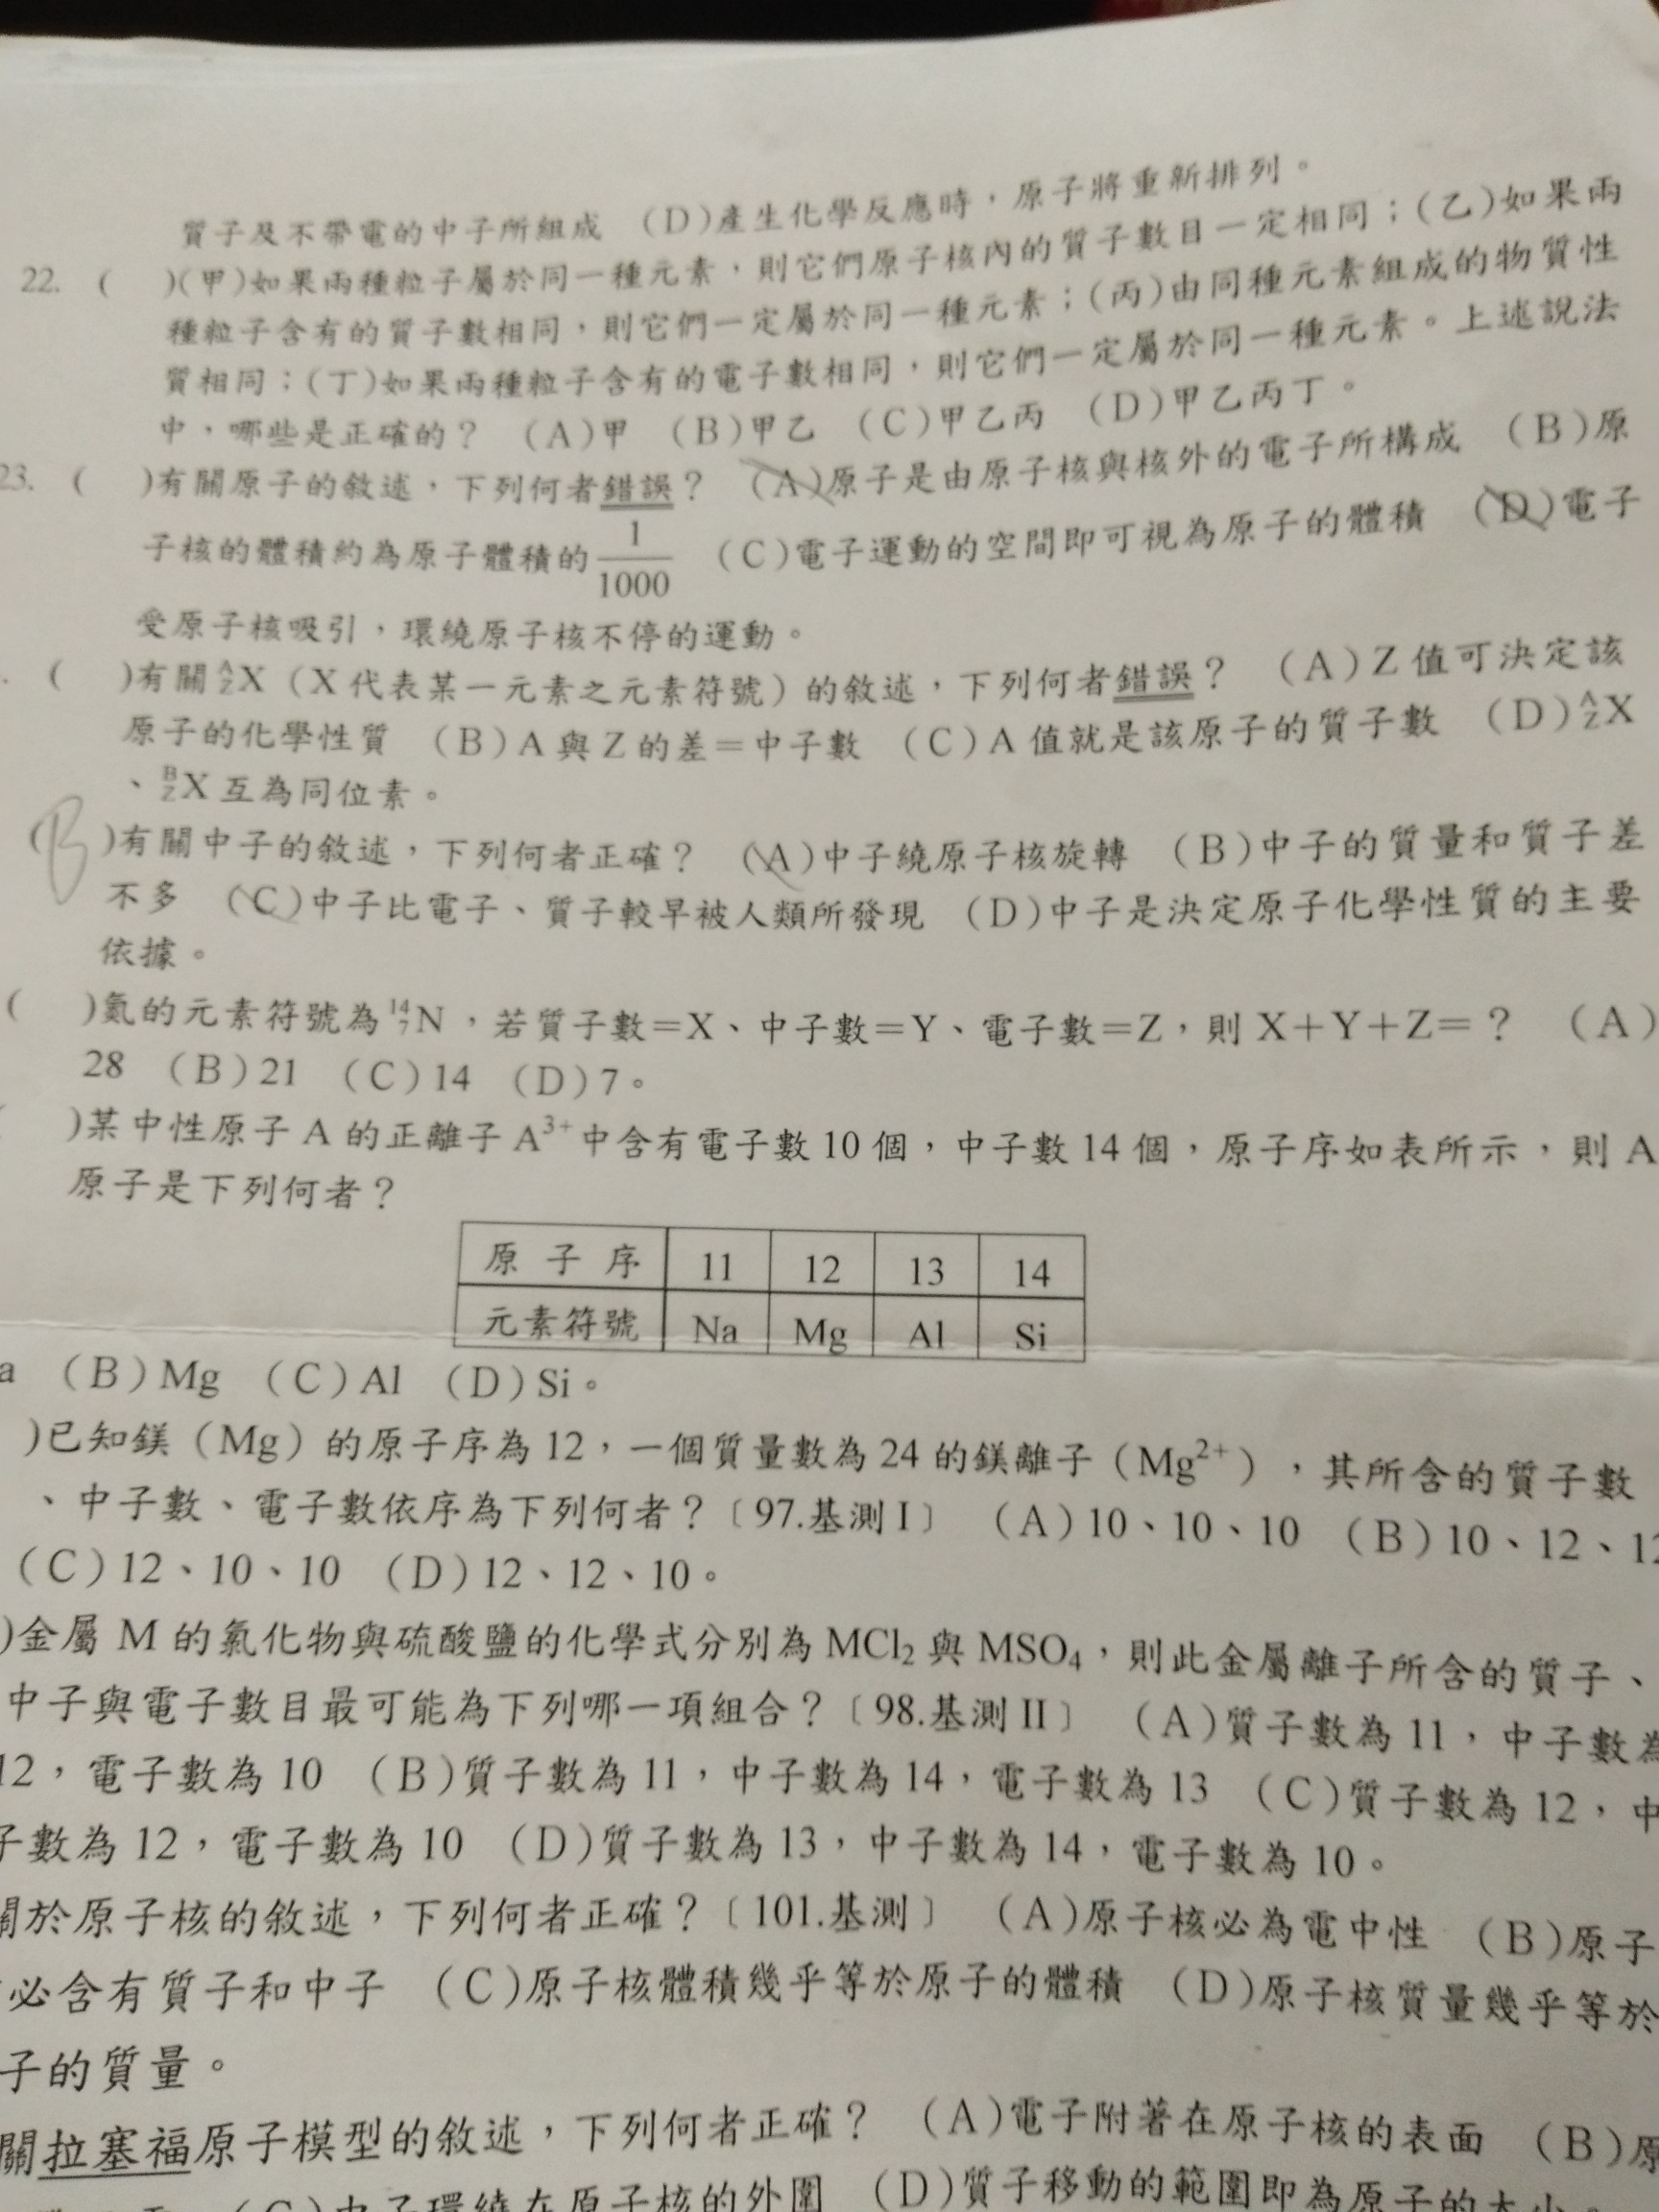 質子及不帶電的中子所組成 (D)產生化學反應時，原子將重新排列。
22. ( )(甲)如果兩種粒子屬於同一種元素，則它們原子核內的質子數目一定相同；(乙)如果兩
種粒子含有的質子數相同，則它們一定屬於同一種元素；(丙)由同種元素組成的物質性
質相同；(丁)如果兩種粒子含有的電子數相同，則它們一定屬於同一種元素。上述說法
中，哪些是正確的？ (A)甲 (B)甲乙 (C)甲乙丙 (D)甲乙丙丁。
23. ( )有關原子的敘述，下列何者錯誤？ (A)原子是由原子核與核外的電子所構成 (B)原
子核的體積約為原子體積的 1/1000 (C)電子運動的空間即可視為原子的體積 (D)電子
受原子核吸引，環繞原子核不停的運動。
. ( )有關 ᴬ_ZX（X代表某一元素之元素符號）的敘述，下列何者錯誤？ (A)Z值可決定該
原子的化學性質 (B)A與Z的差＝中子數 (C)A值就是該原子的質子數 (D)ᴬ_ZX
、ᴮ_ZX互為同位素。
(B)有關中子的敘述，下列何者正確？ (A)中子繞原子核旋轉 (B)中子的質量和質子差
不多 (C)中子比電子、質子較早被人類所發現 (D)中子是決定原子化學性質的主要
依據。
( )氮的元素符號為 ¹⁴₇N，若質子數＝X、中子數＝Y、電子數＝Z，則X＋Y＋Z＝？ (A)
28 (B)21 (C)14 (D)7。
)某中性原子A的正離子A³⁺中含有電子數10個，中子數14個，原子序如表所示，則A
原子是下列何者？
原子序 11 12 13 14
元素符號 Na Mg Al Si
a (B)Mg (C)Al (D)Si。
)已知鎂（Mg）的原子序為12，一個質量數為24的鎂離子（Mg²⁺），其所含的質子數
、中子數、電子數依序為下列何者？〔97.基測I〕 (A)10、10、10 (B)10、12、12
(C)12、10、10 (D)12、12、10。
)金屬M的氯化物與硫酸鹽的化學式分別為MCl₂與MSO₄，則此金屬離子所含的質子、
中子與電子數目最可能為下列哪一項組合？〔98.基測II〕 (A)質子數為11，中子數為
12，電子數為10 (B)質子數為11，中子數為14，電子數為13 (C)質子數為12，中
子數為12，電子數為10 (D)質子數為13，中子數為14，電子數為10。
關於原子核的敘述，下列何者正確？〔101.基測〕 (A)原子核必為電中性 (B)原子
必含有質子和中子 (C)原子核體積幾乎等於原子的體積 (D)原子核質量幾乎等於
子的質量。
關拉塞福原子模型的敘述，下列何者正確？ (A)電子附著在原子核的表面 (B)原
(C)中子環繞在原子核的外圍 (D)質子移動的範圍即為原子的大小。